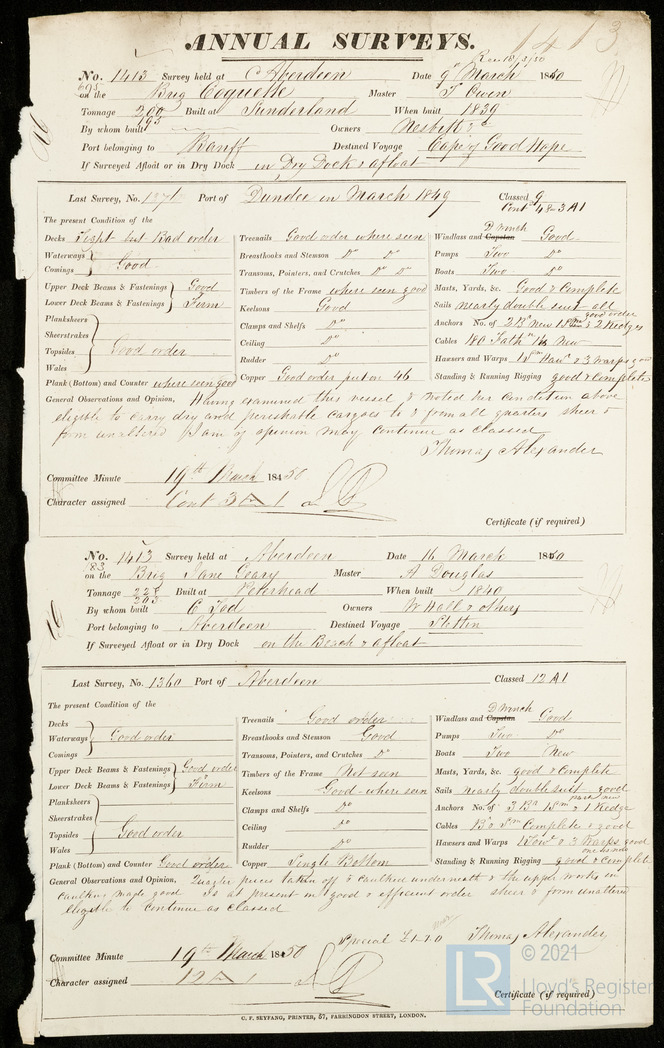 1413
ANNUAL SURVEYS.
No. 1413 Survey held at Aberdeen Date 9th March 1850
on the Brig Coquette Master T Owen
Tonnage 200 Built at Sunderland When built 1839
195
By whom built Owners Nesbitt &
Port belonging to Banff Destined Voyage Cape of Good Hope
If Surveyed Afloat or in Dry Dock in Dry Dock & afloat
Last Survey, No. Port of Dundee in March 1849 Classed 9
Cont 48 3 A1
The present Condition of the
Decks Tight but Bad order
Waterways
Comings
Good
Upper Deck Beams & Fastenings Good
Lower Deck Beams & Fastenings Firm
Planksheers
Sheerstrakes
Topsides
Wales
Good order
Plank (Bottom) and Counter where seen good
Treenails Good order where seen
Breasthooks and Stemson Do Do
Transoms, Pointers, and Crutches Do Do
Timbers of the Frame where seen good
Keelsons Good
Clamps and Shelfs Do
Ceiling Do
Rudder Do
Copper Good order put on 46
Windlass and Capstan D Winch Good
Pumps Two Do
Boats Two Do
Masts, Yards, &c. Good & Complete
Sails nearly double suit all good order
Anchors No. of 2 Kedges
Cables 180 Fath New
Hawsers and Warps 3 Warps good
Standing & Running Rigging good & complete
General Observations and Opinion, Having examined this vessel & noted her condition above
eligible to carry dry and perishable cargoes to & from all quarters sheer &
form unaltered I am of opinion may continue as classed
Thomas Alexander
Committee Minute 19th March 1850
Character assigned Cont 3 A 1
Certificate (if required)
No. 1413 Survey held at Aberdeen Date 16 March 1850
on the Brig Jane Geary Master A Douglas
Tonnage 228 Built at Peterhead When built 1840
By whom built C Tod Owners W Hall & others
Port belonging to Aberdeen Destined Voyage Stettin
If Surveyed Afloat or in Dry Dock on the Beach & afloat
Last Survey, No. 1360 Port of Aberdeen Classed 12 A1
The present Condition of the
Decks
Waterways
Comings
Good order
Upper Deck Beams & Fastenings Good order
Lower Deck Beams & Fastenings Firm
Planksheers
Sheerstrakes
Topsides
Wales
Good order
Plank (Bottom) and Counter Good order
Treenails Good order
Breasthooks and Stemson Good
Transoms, Pointers, and Crutches Do
Timbers of the Frame Not seen
Keelsons Good where seen
Clamps and Shelfs Do
Ceiling Do
Rudder Do
Copper Single Bottom
Windlass and Capstan D Winch Good
Pumps Two Do
Boats Two New
Masts, Yards, &c. good & Complete
Sails nearly double suit good
Anchors No. of 3 & 1 Kedge
Cables Complete & good
Hawsers and Warps 3 Warps good
Standing & Running Rigging good & Complete
General Observations and Opinion, pieces taken off & caulked underneath & the upper works in
caulking made good Is at present in good & efficient order sheer & form unaltered
eligible to Continue as classed
Special £1.1.0 Thomas Alexander
Committee Minute 19th March 1850
Character assigned 12 A 1
Certificate (if required)
C. F. SEYFANG, PRINTER, 57, FARRINGDON STREET, LONDON.
LR
© 2021
Lloyd's Register
Foundation